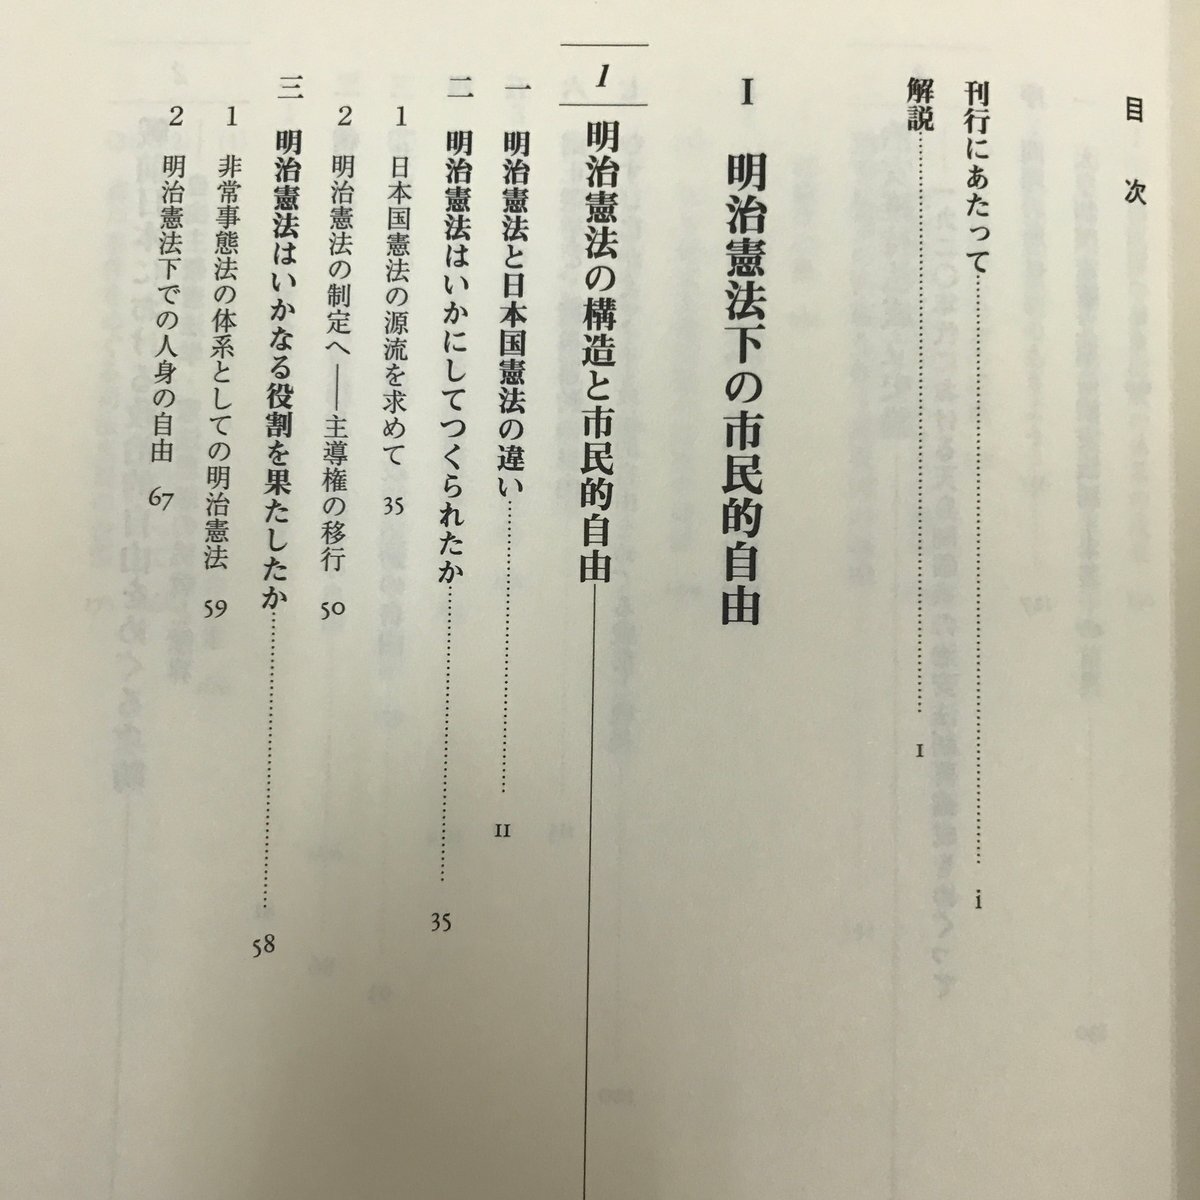 目次
刊行にあたって……………………………… i
解説……………………………… 1
I 明治憲法下の市民的自由
1 明治憲法の構造と市民的自由
一 明治憲法と日本国憲法の違い……………… 11
二 明治憲法はいかにしてつくられたか……………… 35
1 日本国憲法の源流を求めて 35
2 明治憲法の制定へ――主導権の移行 50
三 明治憲法はいかなる役割を果たしたか……………… 58
1 非常事態法の体系としての明治憲法 59
2 明治憲法下での人身の自由 67